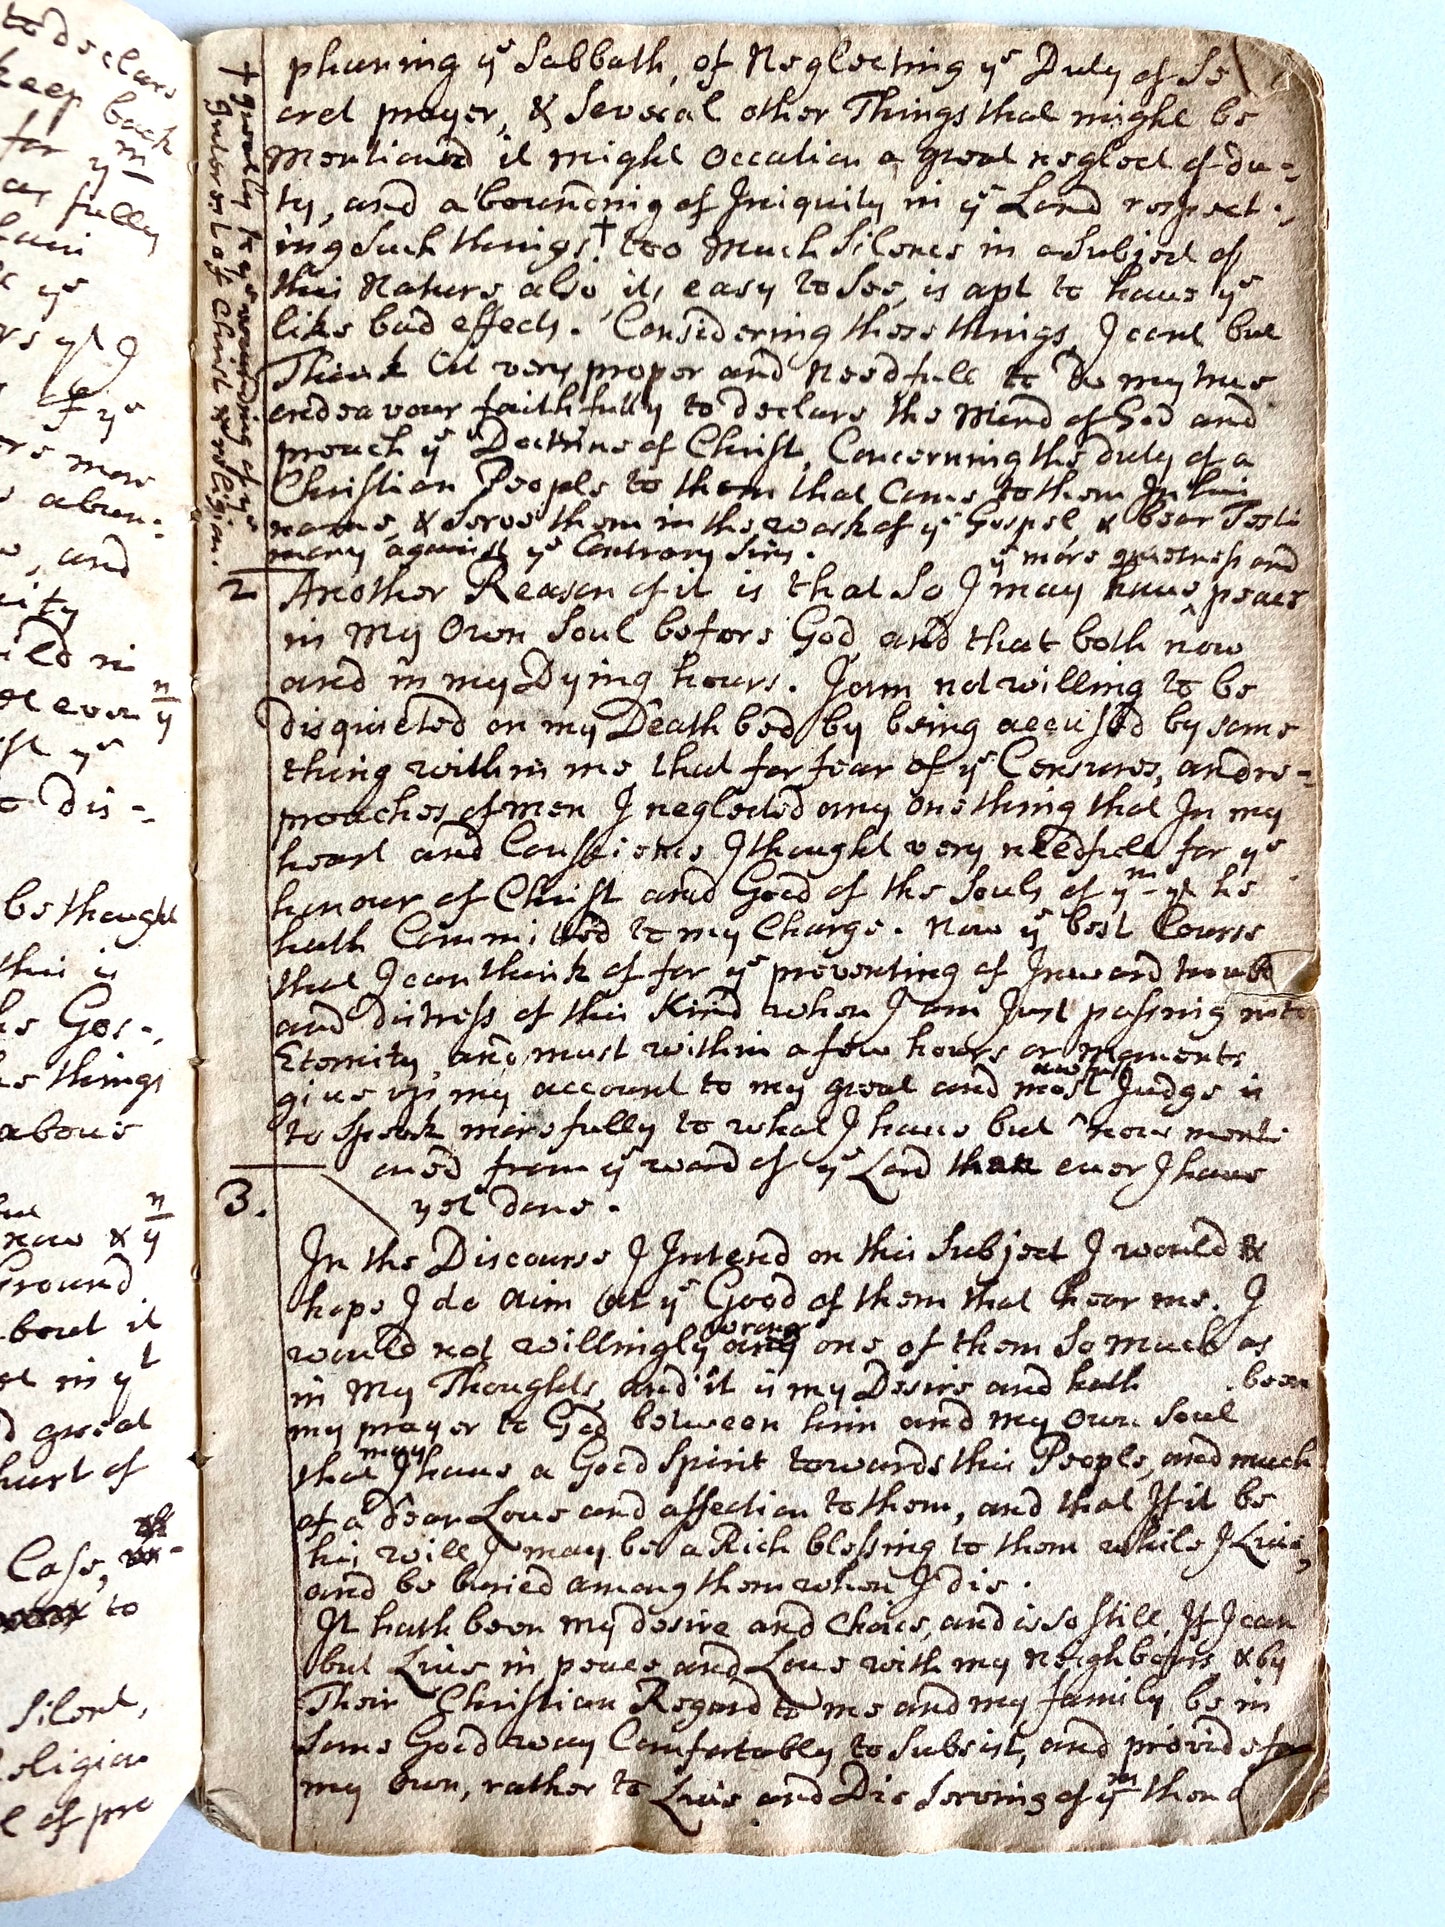 to declare
keep back
for yᵐ
as fully
yᵉ
yᵗ I
of yᵉ
more
abun:
, and
ld in
even yⁿ
yᵉ
dis-
be thought
this is
Gos-
things
above
now & yⁿ
Ground
bout it
in yᵗ
great
hurt of
Case,
to
Silent,
eligion
of pro
phaning yᵉ Sabbath, of Neglecting yᵉ Duty of Se
cret prayer, & Several other Things that might be
Mentioned it might Occasion a great neglect of du-
ty, and abounding of Iniquity in yᵉ Land respect-
ing Such things.† too Much Silence in a Subject of
this Nature also its easy to See, is apt to have yᵉ
like bad effects. Considering these things, I cant but
Think it very proper and Needfull to Do my true
endeavour faithfully to declare the Mind of God and
preach yᵉ Doctrine of Christ, Concerning the duty of a
Christian People to them that Come to them In his
name, & Serve them in the work of yᵉ Gospel & bear Testi
mony against yᵉ Contrary Sins.
† greatly to yᵉ wounding of yᵉ
Interest of Christ & religion.
yᵉ more quietness and
2 Another Reason of it is that So I may have ^ peace
in My Own Soul before God, and that both now
and in my Dying hours. I am not willing to be
disquieted on my Death bed by being accused by some
thing within me, that for fear of yᵉ Censures, and re-
proaches of men I neglected any one thing that In my
heart and Conscience I thought very needfull for yᵉ
honour of Christ and Good of the Souls of yᵐ yᵗ he
hath Committed to my Charge. Now yᵉ best Course
that I can think of for yᵉ preventing of Inward trouble
and distress of this Kind when I am Just passing into
Eternity, and must within a few hours or Moments
give up my account to my great and most Judge is
to Speak more fully to what I have but ^ now menti
oned from yᵉ word of yᵉ Lord than ever I have
yet done.
3.
In the Discourse I Intend on this Subject I would &
hope I do aim at yᵉ Good of them that hear me. I
wrong
would not willingly any one of them So much as
in My Thoughts, and it is my Desire and hath been
my prayer to God between him and my own Soul
may
that I have a Good Spirit towards this People, and much
of a Dear Love and affection to them, and that If it be
his will I may be a Rich blessing to them while I Live,
and be buried among them when I die.
It hath been my desire and Choice, and is so still, If I can
but Live in peace and Love with my Neighbours & by
Their Christian Regard to me and my family be in
Some Good way Comfortably to Subsist, and provide for
my own, rather to Live and Die Serving of yᵐ then